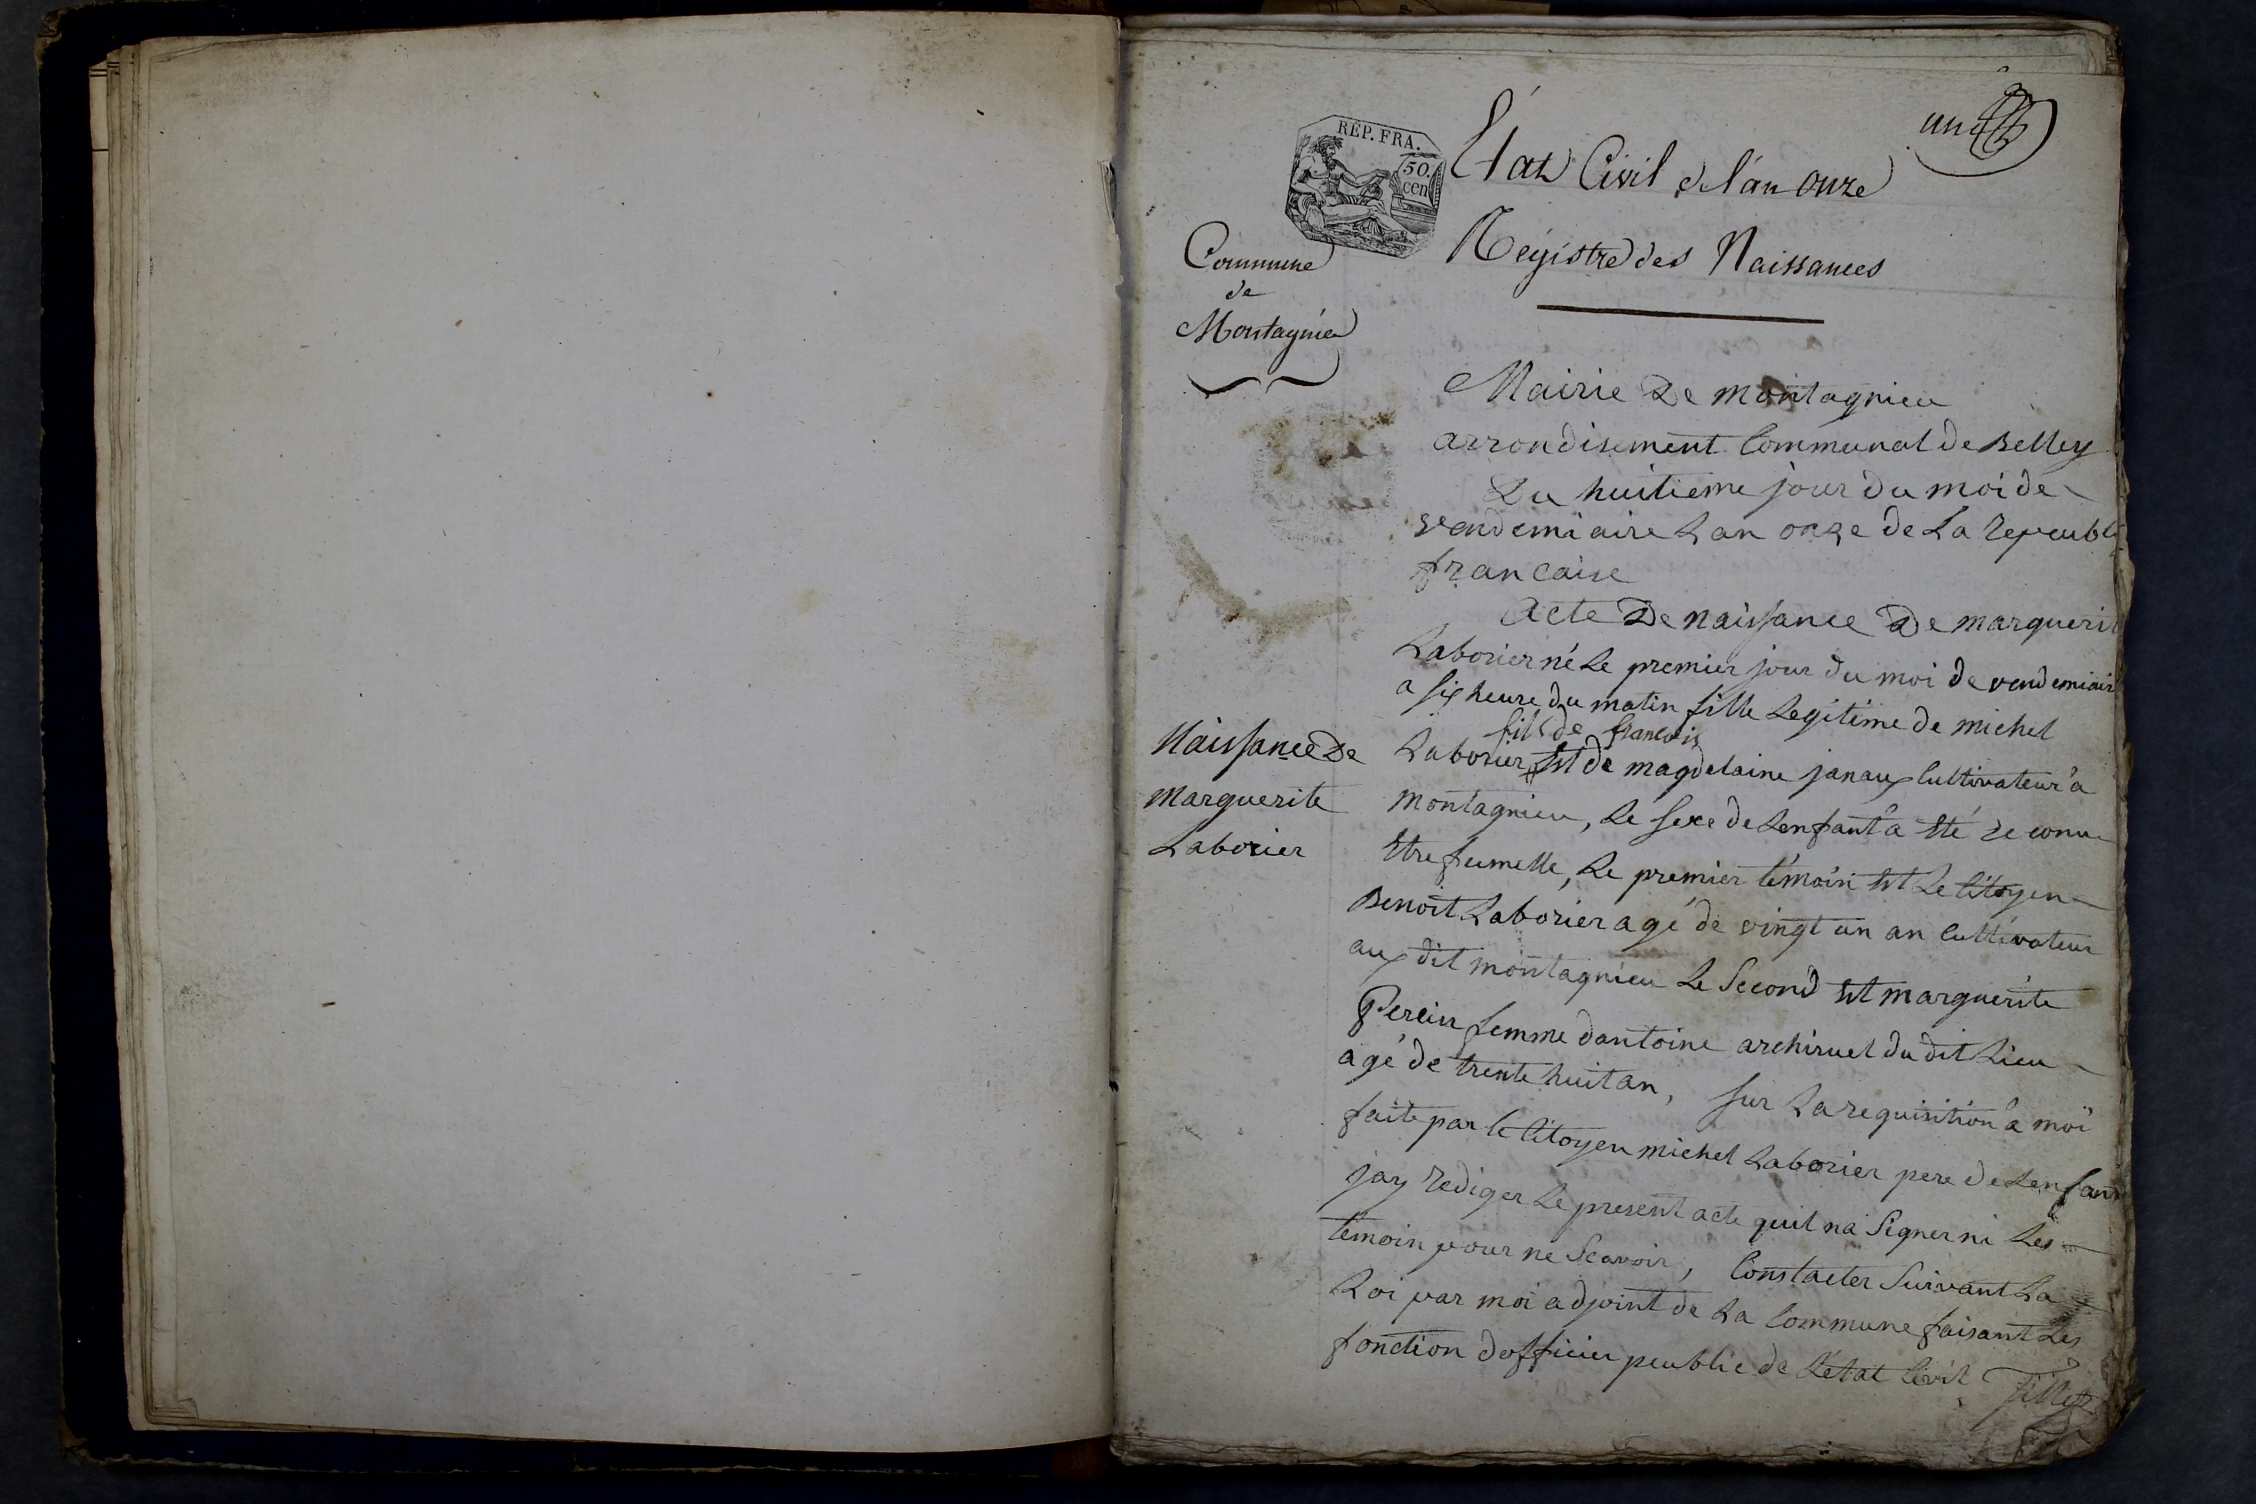 une
RÉP. FRA.
50.
cen
État Civil de l'an onze
Régistre des Naissances
Commune
de
Montagnieu
Mairie de montagnieu
arrondisement Communal de Belley
Du huitieme jour du moi de
vendemiaire Lan onze de La republi
francaise
Acte de naissance de marguerit
Laborier né Le premier jour du moi de vendemiair
a six heure du matin fille Legitime de michel
fils de francois
Laborier Et de magdelaine janaux Cultivateur a
montagnieu, Le sexe de Lenfant a Eté reconu
Etre feumelle, Le premier témoin Est Le Citoyen
Benoit Laborier agé de vingt un an Cultivateur
aux dit montagnieu Le Second Est marguerite
Perein femme dantoine archiruel du dit Lieu
agé de trente huit an, sur La requisition a moi
faite par le Citoyen michel Laborier pere de Lenfant
jay rediger Le present acte quil na Signer ni Les
témoin pour ne Scavoir, Constater Suivant La
Loi par moi adjoint de La Commune faisant Les
fonction dofficier peublic de Létat Civil
Naissance de
marguerite
Laborier